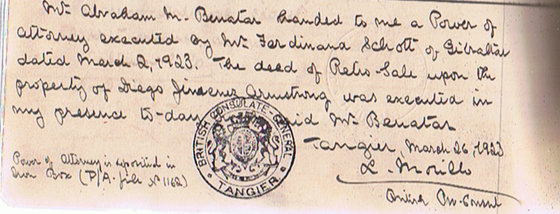 Mr. Abraham M. Benatar handed to me a Power of
attorney executed by Mr. Ferdinand Schott of Gibraltar
dated March 2, 1923. The deed of Retro-Sale upon the
property of Diego Jimenez Armstrong was executed in
my presence to-day said Mr. Benatar
Tangier, March 26, 1923
L. Morillo
British Consul
Power of Attorney is deposited in
Iron Box (P/A. file No 1162)
BRITISH CONSULATE-GENERAL
TANGIER